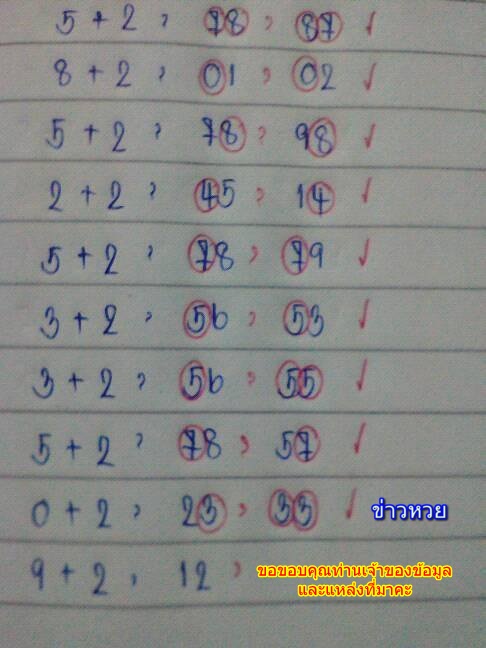 5 + 2 , 78 , 87 ✓
8 + 2 , 01 , 02 ✓
5 + 2 , 78 , 98 ✓
2 + 2 , 45 , 14 ✓
5 + 2 , 78 , 79 ✓
3 + 2 , 56 , 53 ✓
3 + 2 , 56 , 55 ✓
5 + 2 , 78 , 57 ✓
0 + 2 , 23 , 33 ✓ ข่าวหวย
9 + 2 , 12 ,
ขอขอบคุณท่านเจ้าของข้อมูล
และแหล่งที่มาคะ